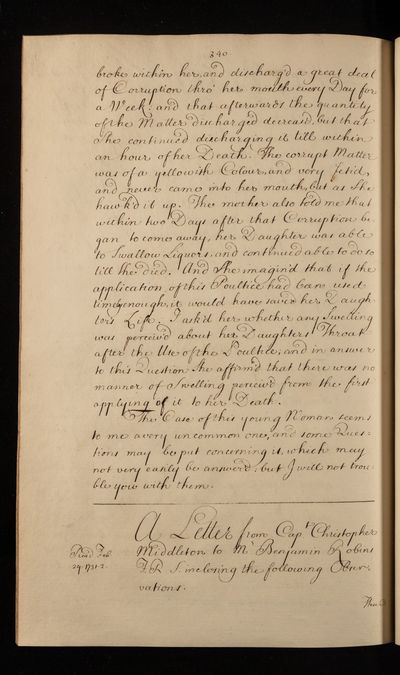 340
broke within her, and discharg'd a great deal
of Corruption thro' her mouth every Day for
a Week; and that afterwards the quantity
of the Matter discharged decreas'd, but that
She continued discharging it till within
an hour of her Death. The corrupt Matter
was of a yellowish Colour, and very fetid,
and never came into her mouth, but as She
hawk'd it up. The mother also told me that
within two Days after that Corruption be
gan to come away, her Daughter was able
to Swallow Liquors, and continued able to do so
till She died. And She imagin'd that if the
application of this Poultice had been used
time enough, it would have saved her Daugh-
ters Life. I ask'd her whether any Swelling
was perceiv'd about her Daughters Throat
after the Use of the Poultice, and in answer
to this Question She affirm'd that there was no
manner of a Swelling perceiv'd from the first
applying of it to her Death.
The Case of this young Woman seems
to me a very uncommon one, and some Ques-
tions may be put concerning it, which may
not very easily be answer'd; but I will not trou-
ble you with them.
A Letter from Capt Christopher
Read Feb. Middleton to Mr Benjamin Robins
24. 1741-2. F. R. S. inclosing the following Obser-
vations.